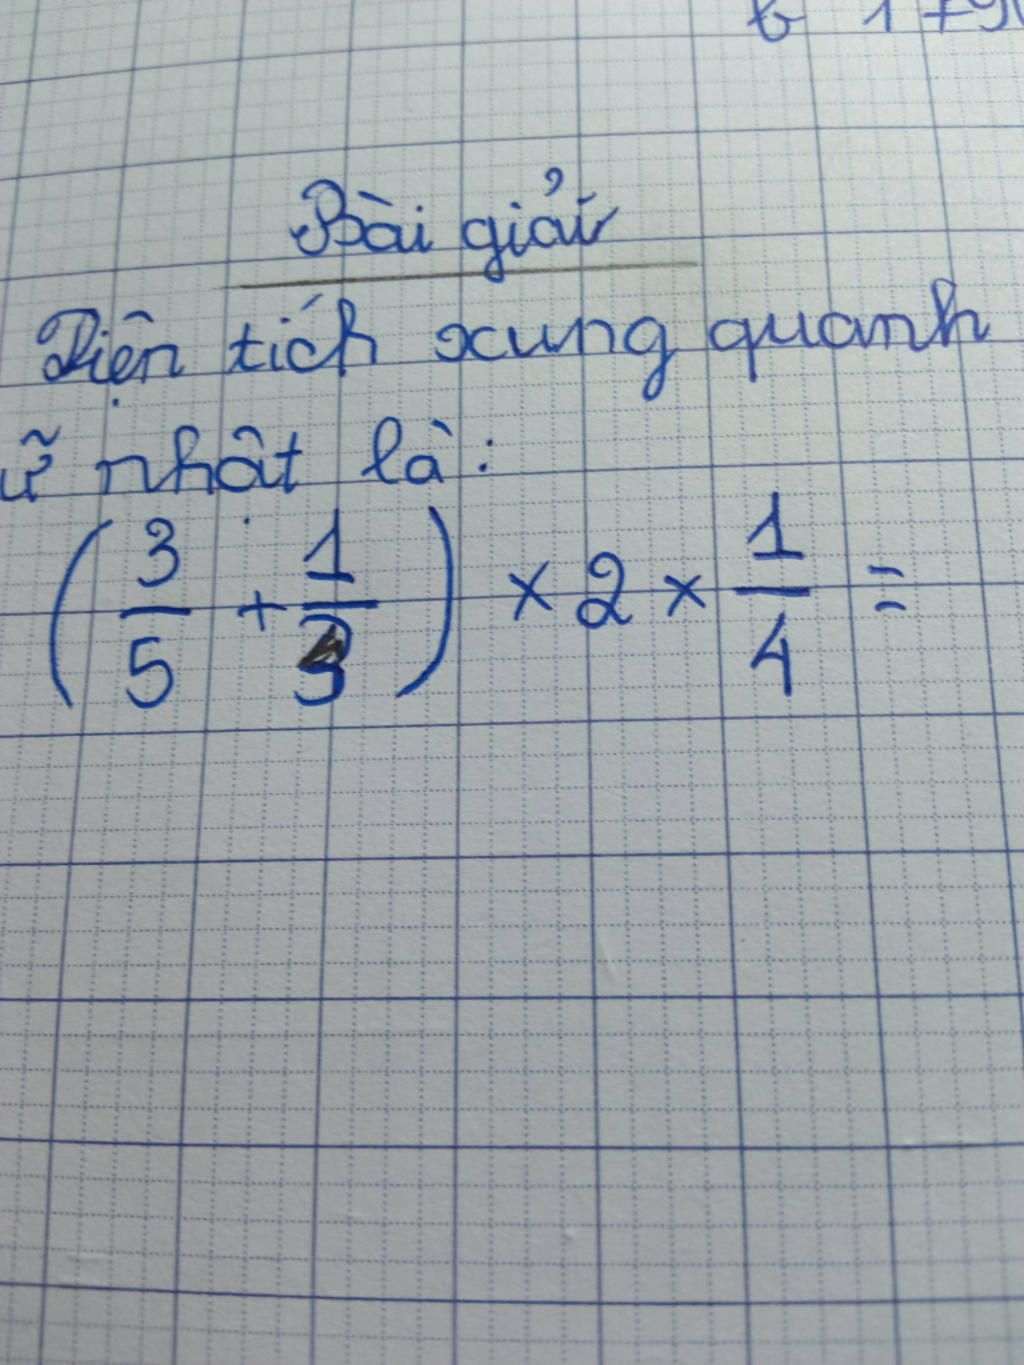 Bài giải
Diện tích xung quanh
nhật là:
(3/5 + 1/3) × 2 × 1/4 =